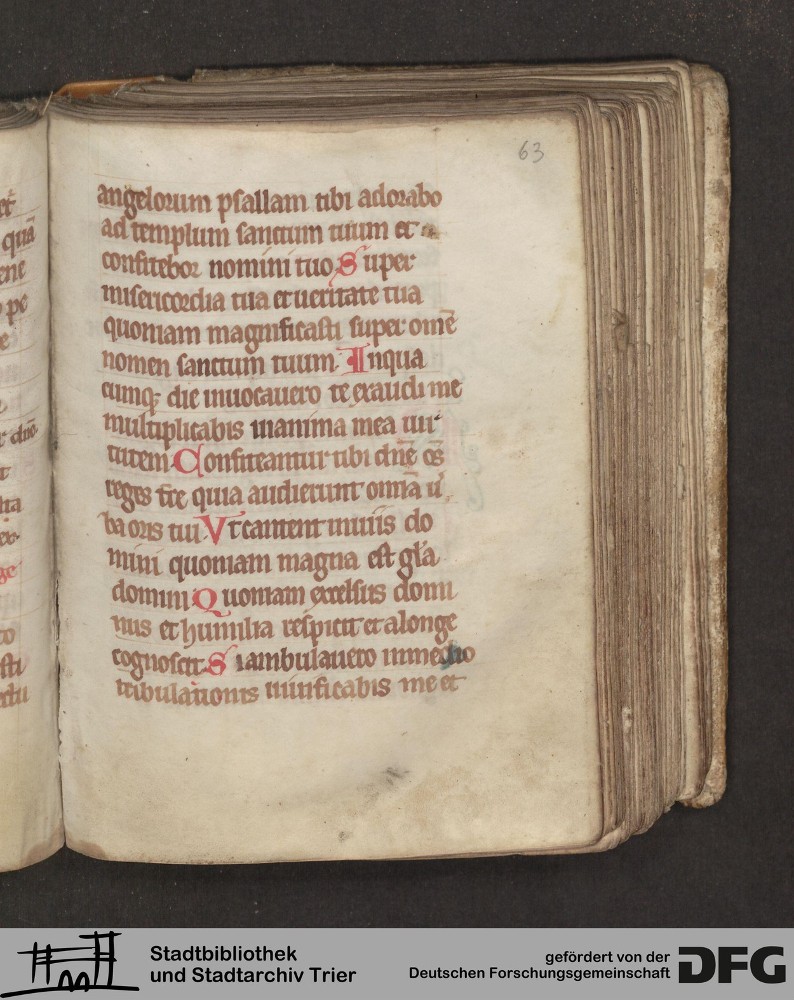 63
angelorum psallam tibi adorabo
ad templum sanctum tuum et
confitebor nomini tuo Super
misericordia tua et ueritate tua
quoniam magnificasti super om̄e
nomen sanctum tuum Inqua
cumqꝫ die inuocauero te exaudi me
multiplicabis inanima mea uir
tutem Confiteantur tibi dn̄e om̄s
reges tr̄e quia audierunt omīa u̓
ba oris tui Vtcantent inuiis do
mini quoniam magna est gl̄a
domini Quoniam excelsus domi
nus et humilia respicit et alonge
cognoscit Siambulauero inmedio
tribulationis uiuificabis me et
Stadtbibliothek
und Stadtarchiv Trier
gefördert von der
Deutschen Forschungsgemeinschaft
DFG